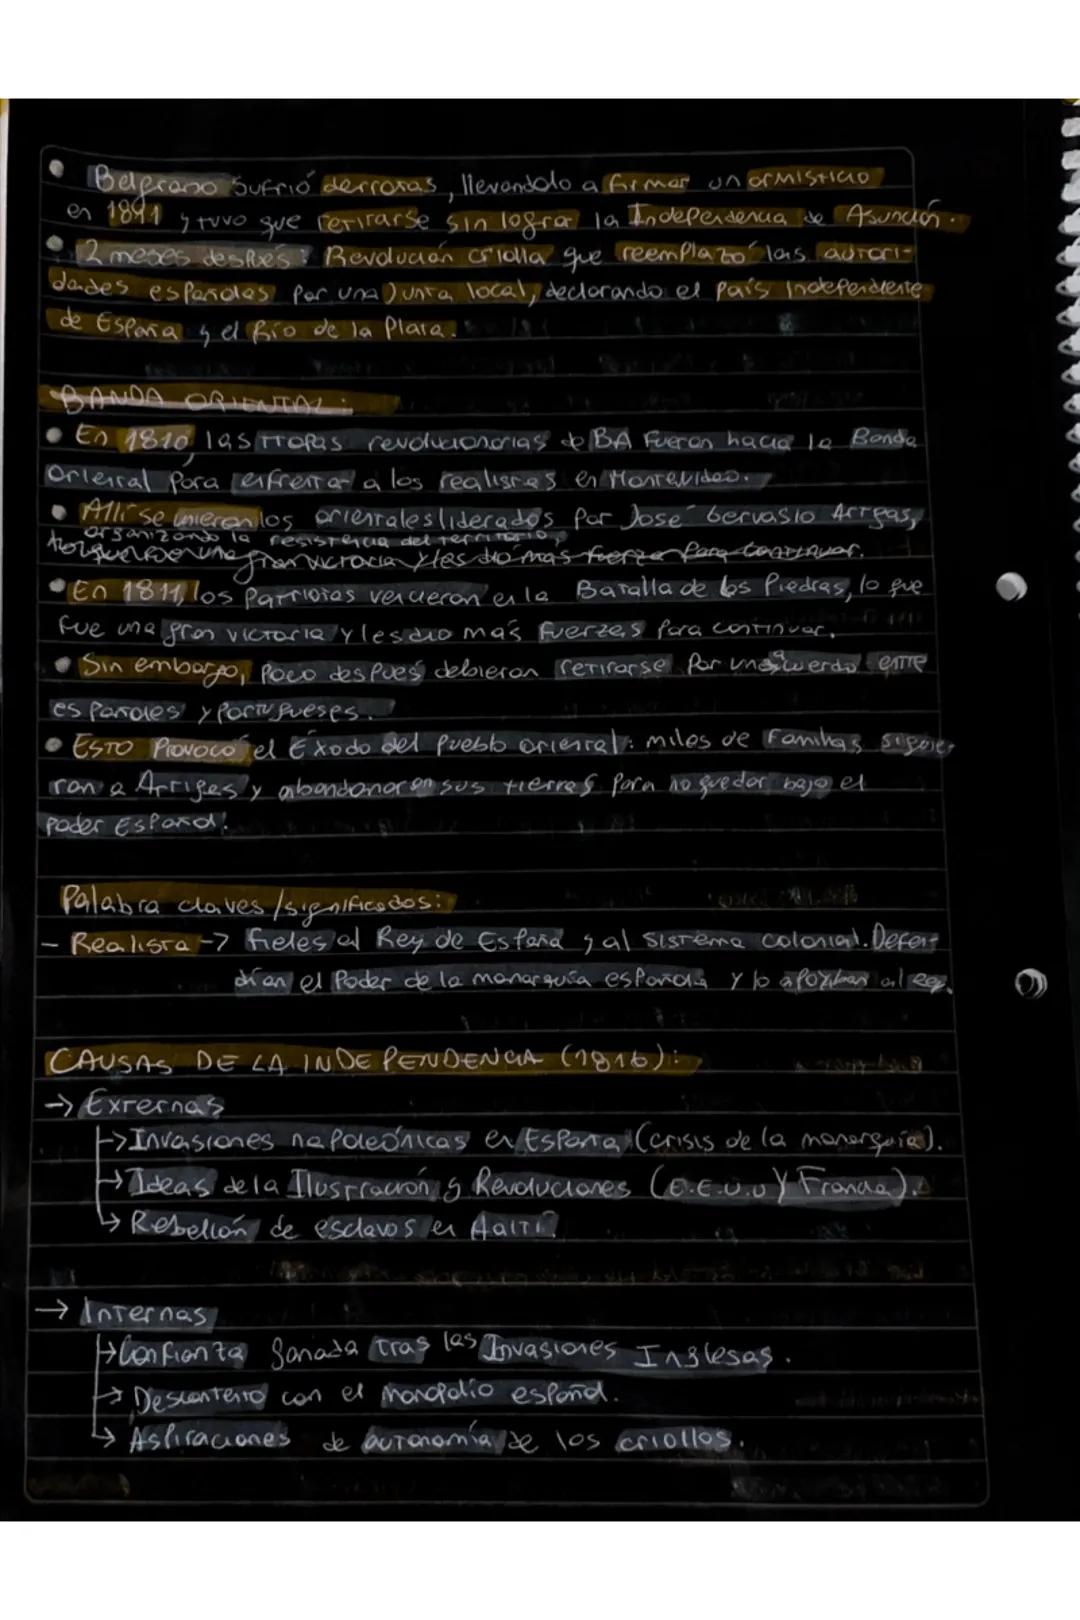 • Belgrano sufrió derrotas, llevandolo a firmar un armisticio
en 1811 y tuvo que retirarse sin lograr la Independencia de Asunción.
• 2 meses después: Revolución criolla que reemplazó las autori-
dades españolas por una Junta local, declarando el país independiente
de España y el Río de la Plata.
BANDA ORIENTAL:
• En 1810, las tropas revolucionarias de BA fueron hacia la Banda
Oriental para enfrentar a los realistas en Montevideo.
• Allí se unieron los orientales liderados por José Gervasio Artigas,
organizando la resistencia del territorio,
gran victoria y les dio más fuerza para continuar.
• En 1811, los patriotas vencieron en la Batalla de las Piedras, lo que
fue una gran victoria y les dio más fuerzas para continuar.
• Sin embargo, poco después debieron retirarse por un acuerdo entre
españoles y portugueses.
• Esto provocó el Éxodo del pueblo oriental: miles de familias siguie-
ron a Artigas y abandonaron sus tierras para no quedar bajo el
poder Español.
Palabra claves /significados:
- Realista -> fieles al Rey de España y al sistema colonial. Defen-
dían el poder de la monarquía española y lo apoyaban al rey.
CAUSAS DE LA INDEPENDENCIA (1816):
→ Externas
→ Invasiones napoleónicas en España (crisis de la monarquía).
→ Ideas de la Ilustración y Revoluciones (E.E.U.U y Francia).
→ Rebelión de esclavos en Haití
→ Internas
→ Confianza ganada tras las Invasiones Inglesas.
→ Descontento con el monopolio español.
→ Aspiraciones de autonomía de los criollos.